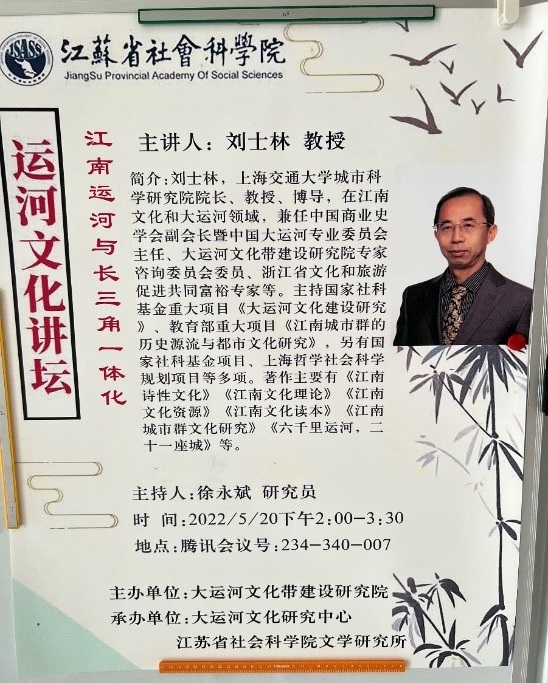 JSASS
江蘇省社會科學院
JiangSu Provincial Academy Of Social Sciences
运河文化讲坛
江南运河与长三角一体化
主讲人：刘士林 教授
简介:刘士林，上海交通大学城市科
学研究院院长、教授、博导，在江南
文化和大运河领域，兼任中国商业史
学会副会长暨中国大运河专业委员会
主任、大运河文化带建设研究院专家
咨询委员会委员、浙江省文化和旅游
促进共同富裕专家等。主持国家社科
基金重大项目《大运河文化建设研究
》、教育部重大项目《江南城市群的
历史源流与都市文化研究》，另有国
家社科基金项目、上海哲学社会科学
规划项目等多项。著作主要有《江南
诗性文化》《江南文化理论》《江南
文化资源》《江南文化读本》《江南
城市群文化研究》《六千里运河，二
十一座城》等。
主持人:徐永斌 研究员
时 间:2022/5/20下午2:00-3:30
地点:腾讯会议号:234-340-007
主办单位:大运河文化带建设研究院
承办单位:大运河文化研究中心
江苏省社会科学院文学研究所